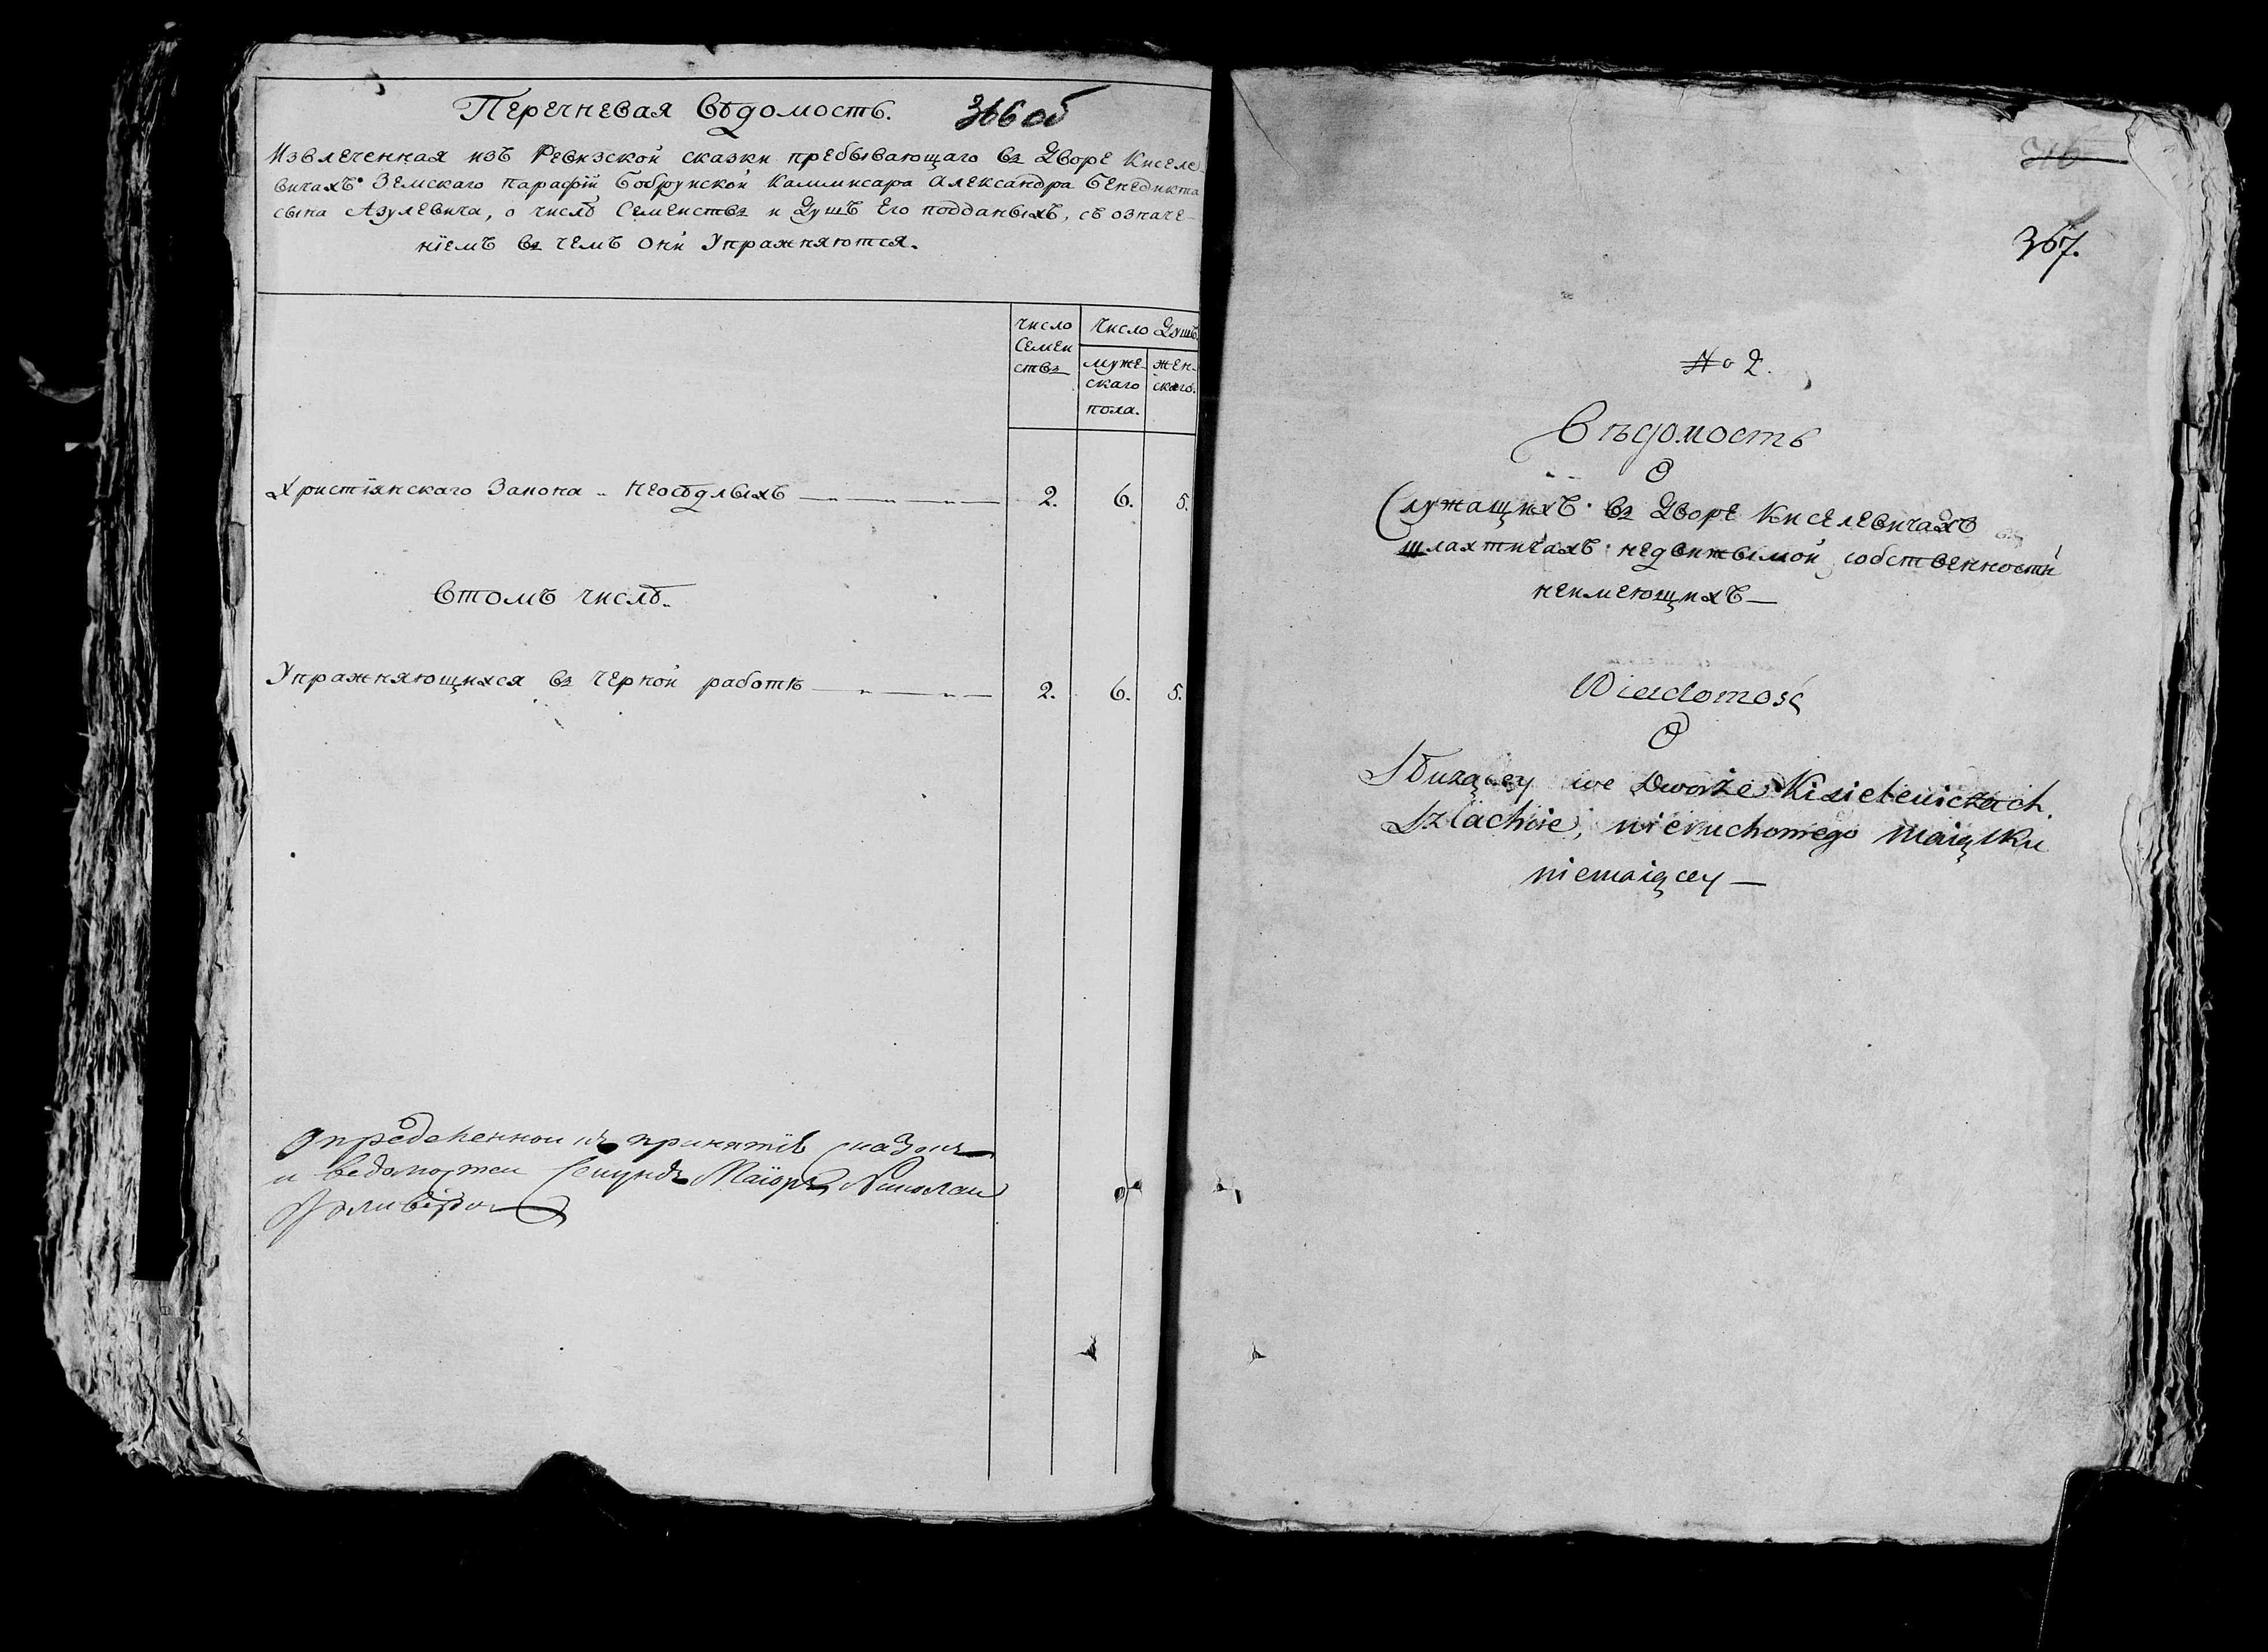 Перечневая Вѣдомость. 366 об
Извлеченная изъ Ревизской сказки пребывающаго въ Дворе Киселе-
вичахъ Земскаго парафiи Бобруиской Каммисара Александра Бенедикта
сына Азулевича, о числѣ Семеиствъ и Душъ Его подданыхъ, съ означе-
нiемъ въ чемъ они Упражняются.
число Семеи ствъ
Число Душъ
муже- скаго пола.
жен- скаго.
Христiянскаго Закона .. неосѣдлыхъ 2. 6. 5.
Втомъ числѣ.
Упражняющихся въ черной работѣ 2. 6. 5.
Определеннои къ принятiе сказокъ
и ведомостеи Секундъ Маiоръ Николаи
316
367.
№ 2.
Вѣдомость
О
Служащихъ въ Дворе Киселевичахъ
шлахтичахъ недвижымой собственности
неимеющихъ —
Wiadomość
O
Służącey we Dworze Kisielewiczach.
Szlachcie, nieruchomego maiątku
niemaiącey —